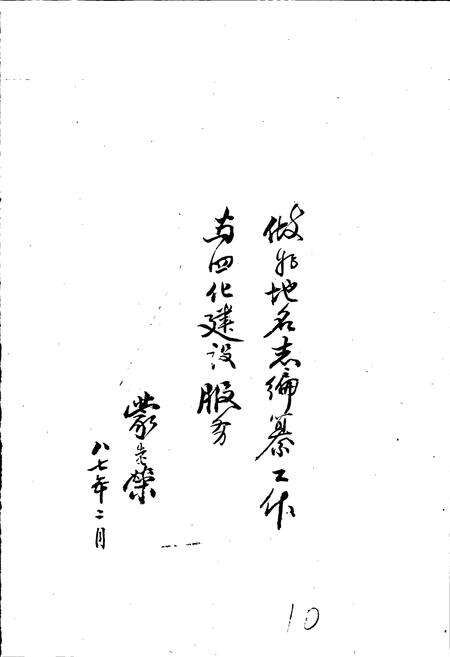 做好地名志编纂工作
为四化建设服务
蒙先荣
八七年二月
10